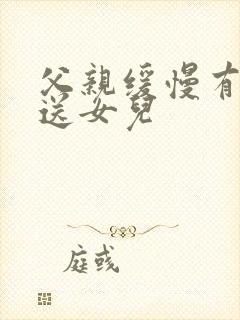 父親緩慢有
送女兒
庭彧